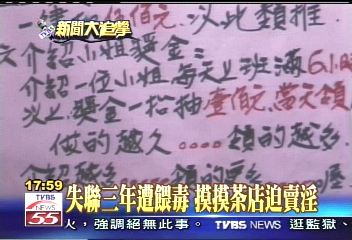 一律 伍佰元.以此類推
新聞大追擊
介紹小姐獎金:
介紹一位小姐,每天上班滿6小時
以上,獎金一抬抽壹佰元,當天領
做的越久....領的越多
17:59
失聯三年遭餵毒 摸摸茶店迫賣淫
TVBS
NEWS
55
火,強調絕無此事。 TVBS NEWS 逛監獄、